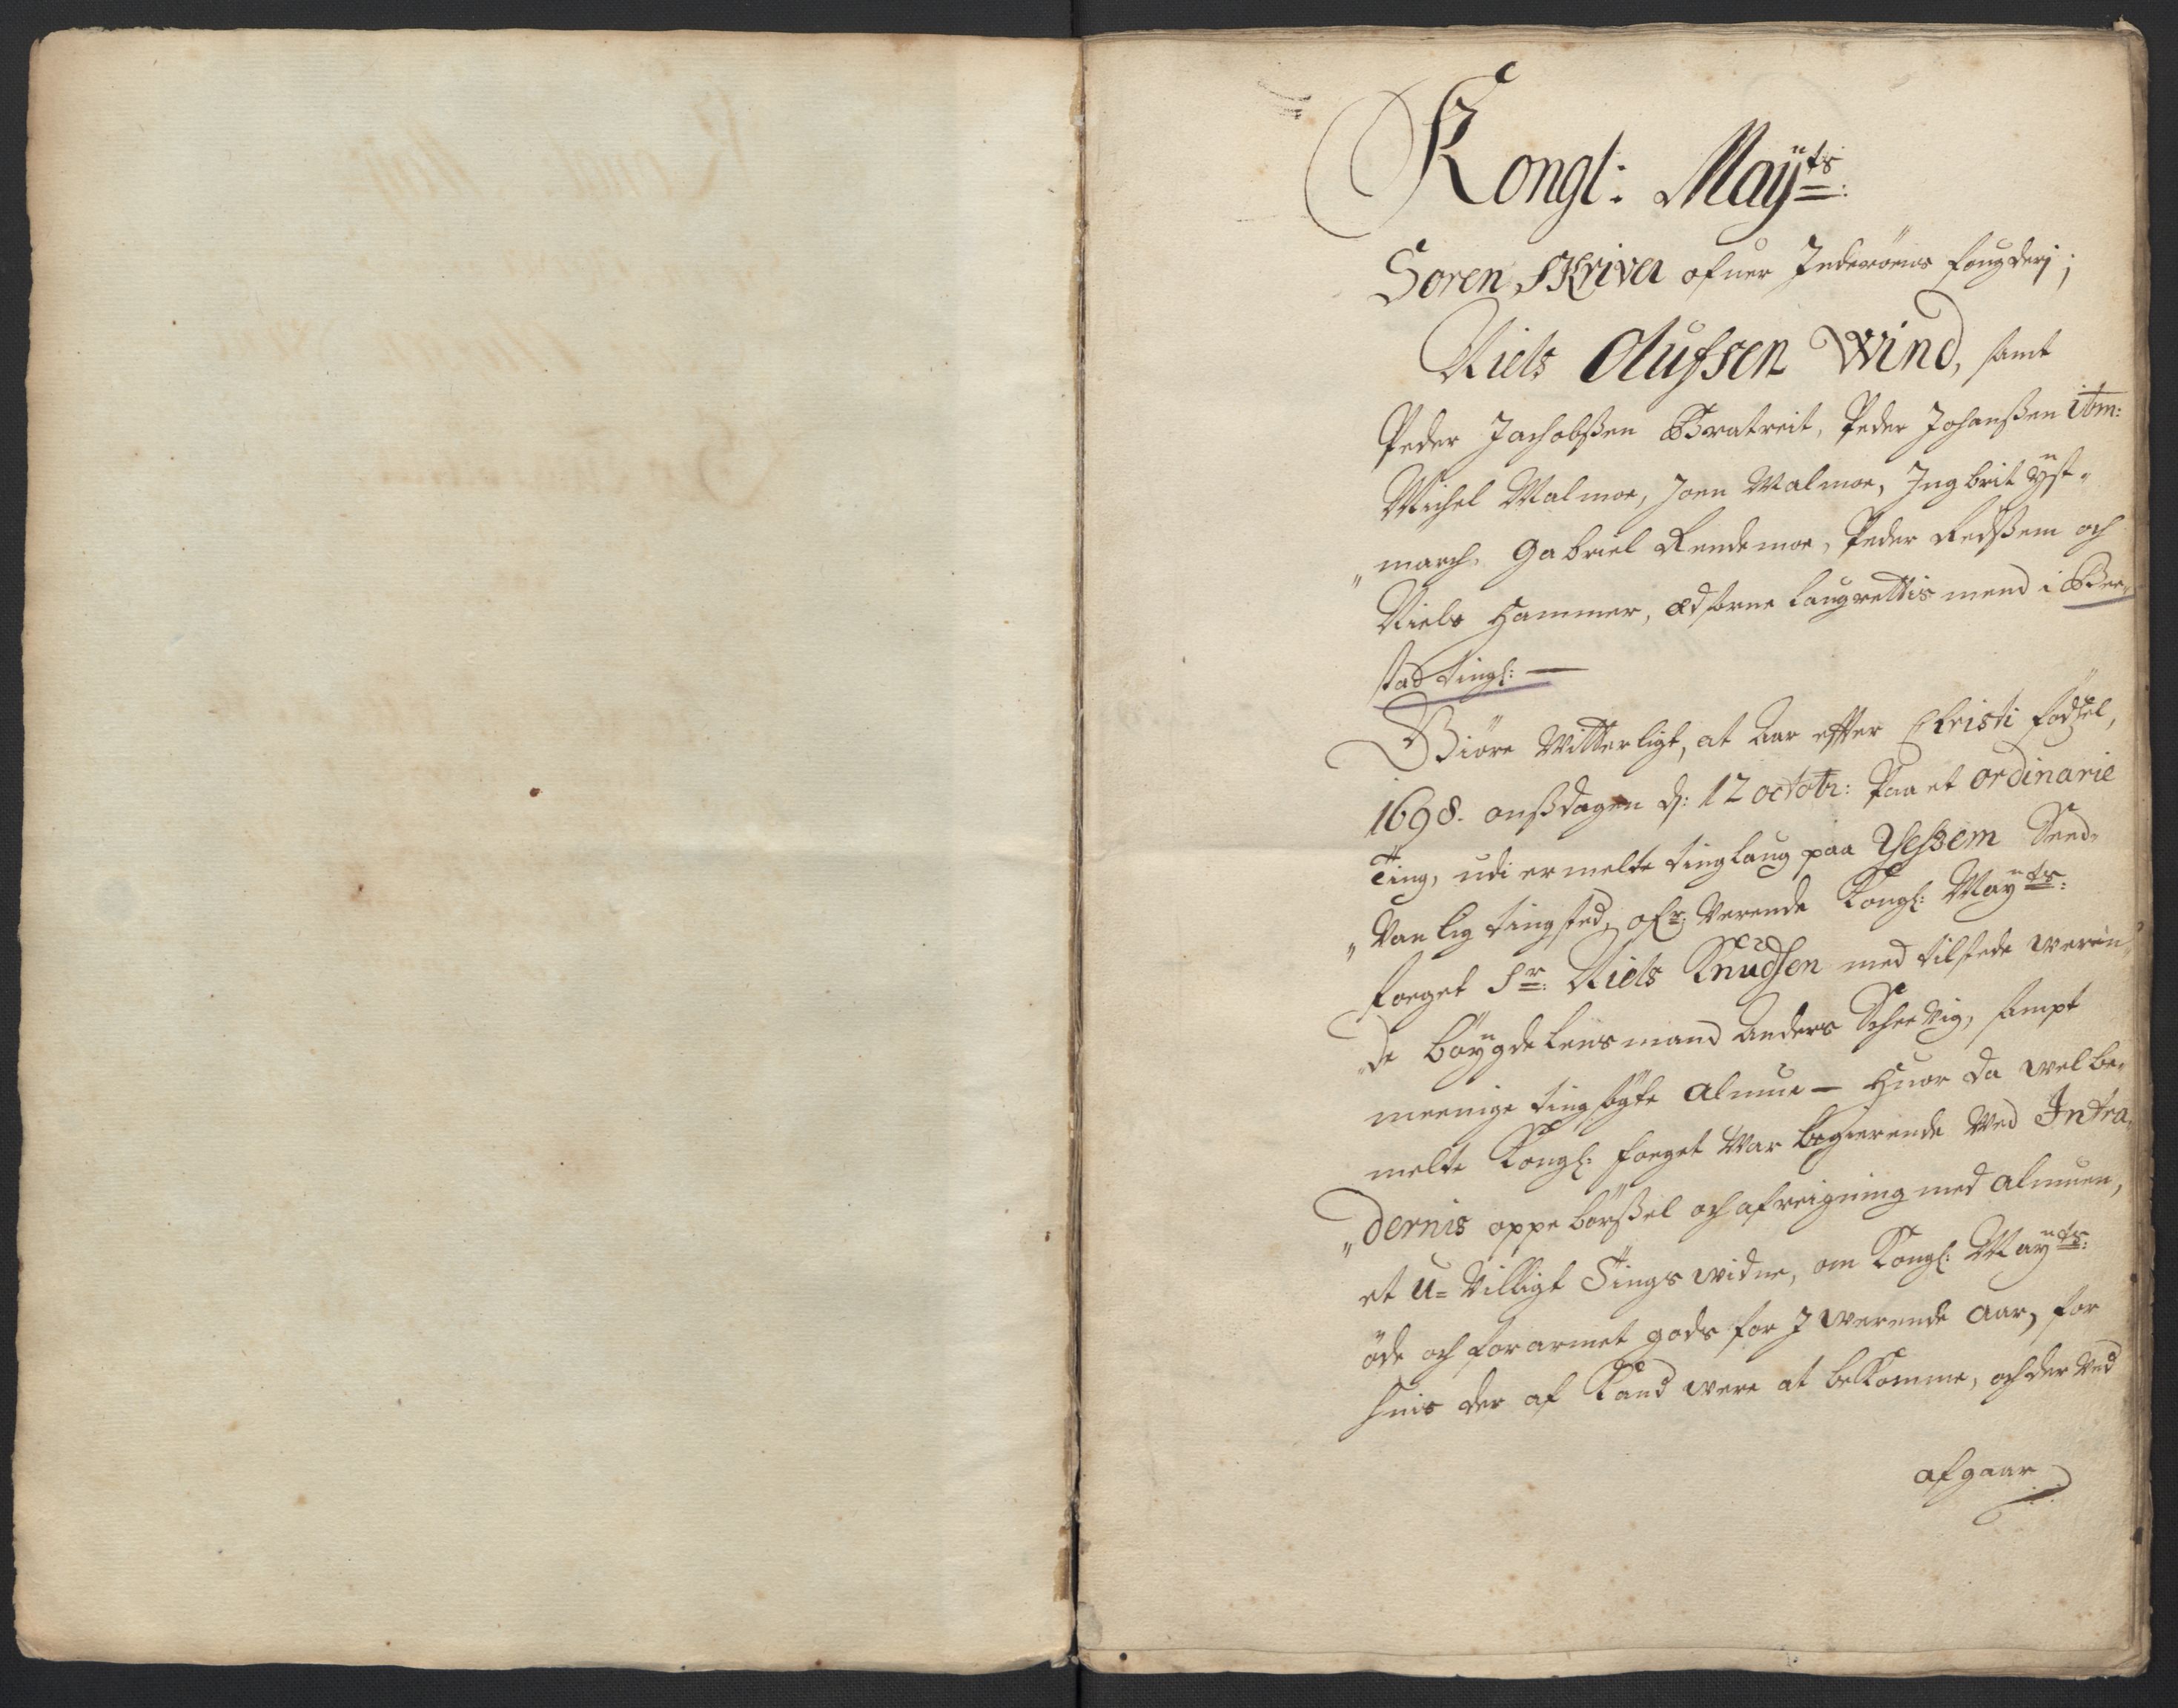 Kongl: Maÿ:ts:
Soren Skriver ofuer Inderöens fougderi;
Niels Olufsen Wind, samt
Peder Jachobßen Bratreit, Peder Johanßen ibm:
Michel Malmoe, Joen Malmoe, Ingbrit ÿst-
march, Gabriel Rendemoe, Peder Redßem och
Niels Hammer, Edsorne laugrettis mend i Bee-
stad tingl: —
Giöre Witterligt, at aar effter Christi födsel,
1698. onßdagen d: 12 octobr: paa et ordinarie
Ting, udi ermelte tinglaug paa Sessem Sæd-
vanlig tingsted, ofr: verende Kongl: Maÿts:
foeget Sr: Niels Knudsen med tilstede weren-
de böygde lensmand Anders Schevig, sampt
meenige tingsögte Almue — Huor da velbe-
melte Kongl: foeget War begierende Wed Intra-
dernis oppebörßel och afreigning med Almuen,
et u-villigt Tings widne, om Kongl: Maÿts:
öde och forarmet gods for J werende Aar, for
huis der af Kand were at bekomme, och der ved
afgaar